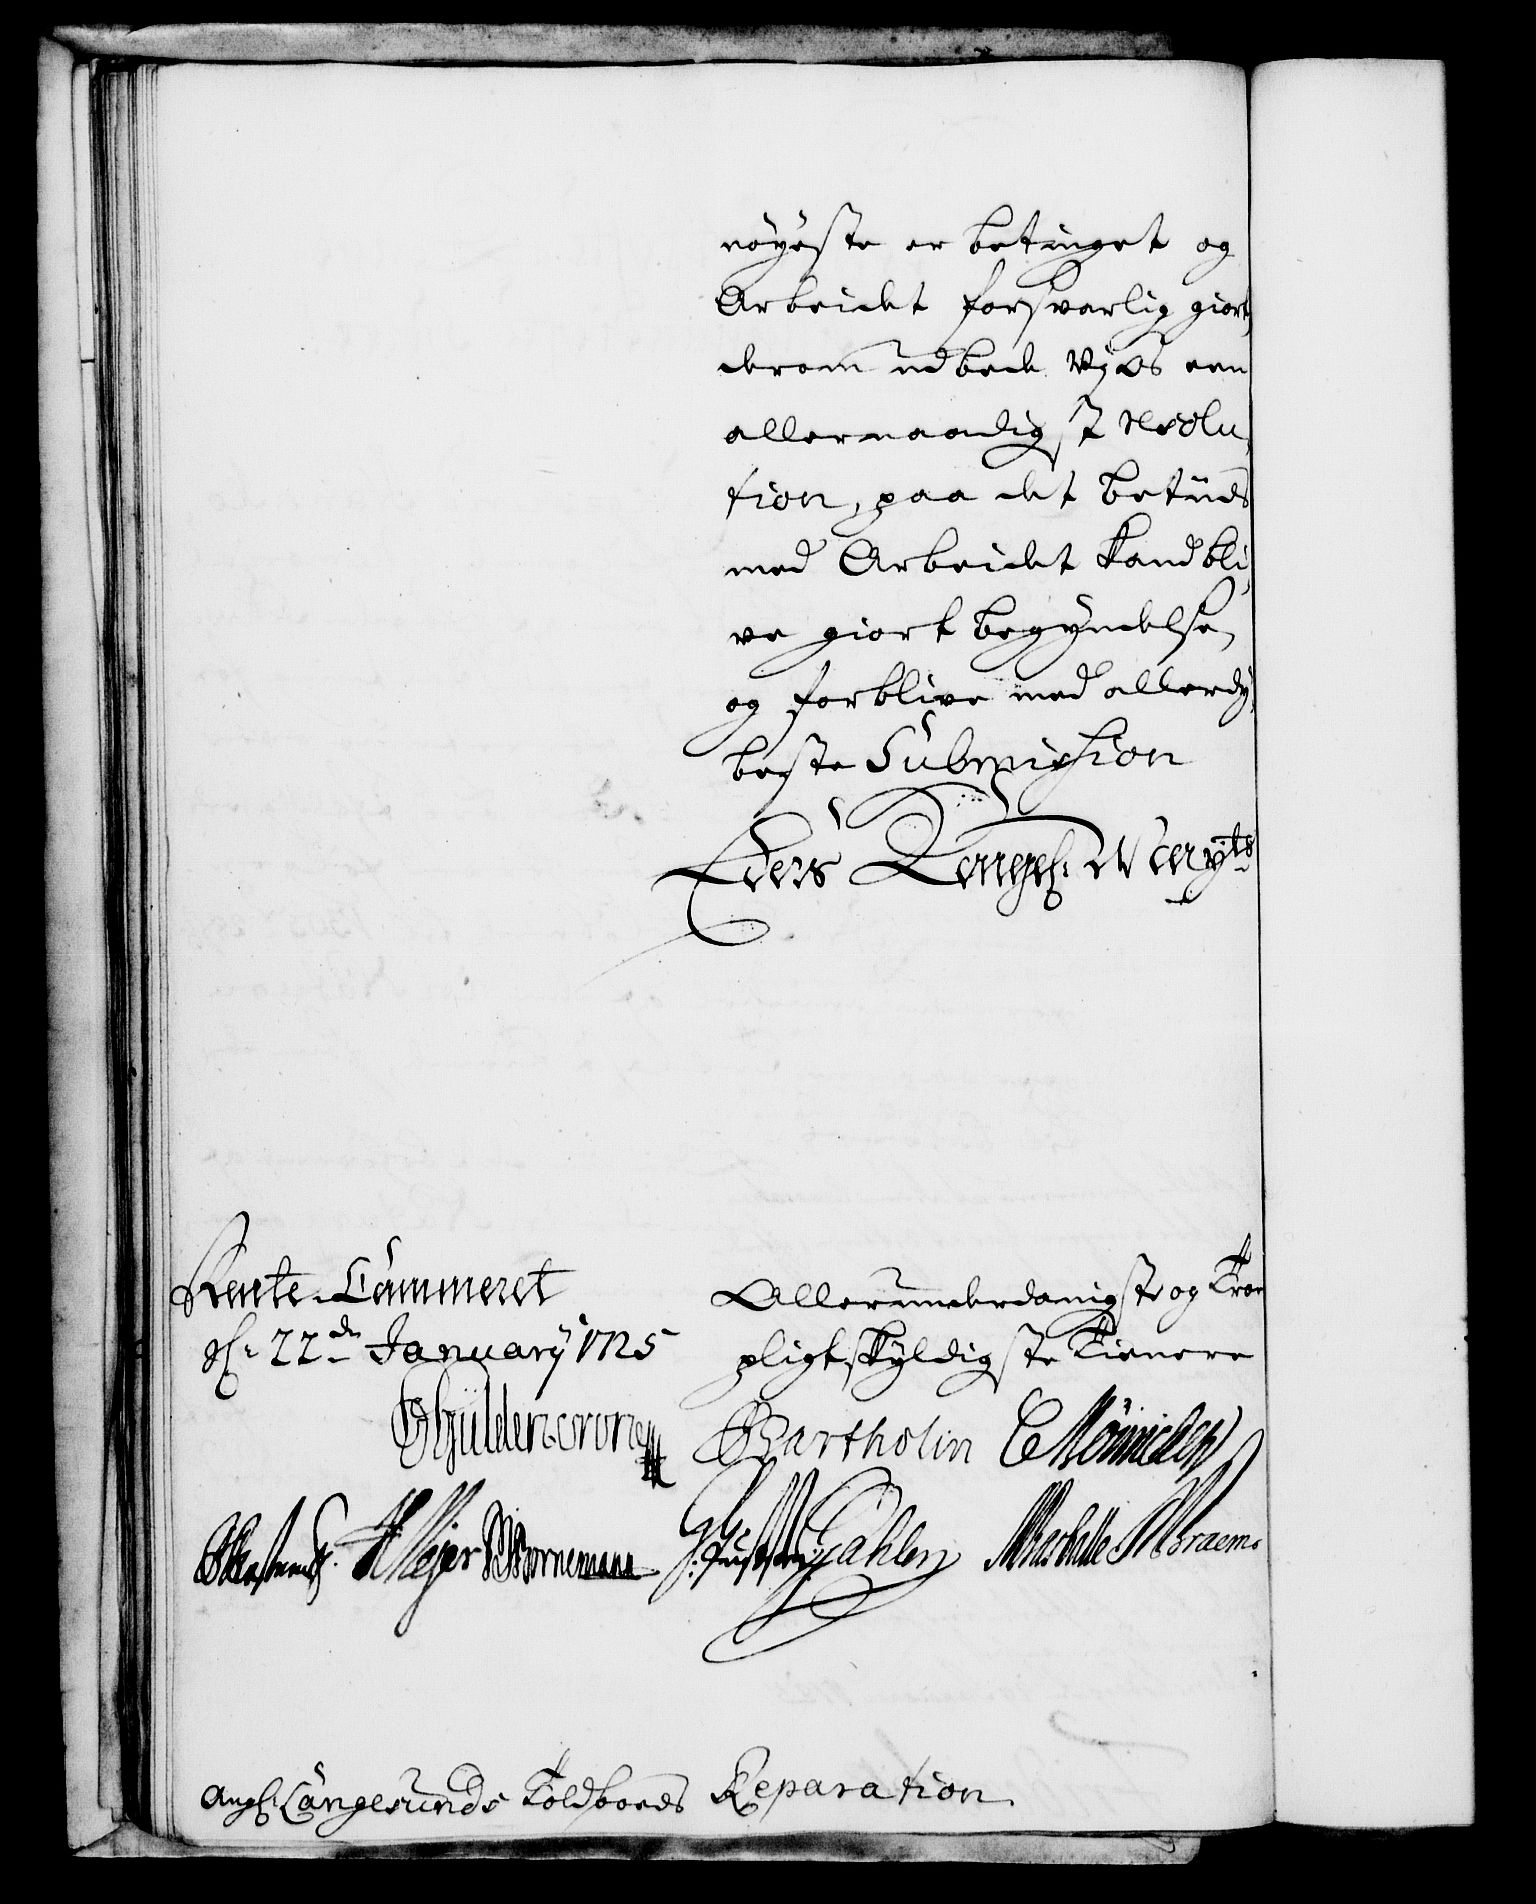 nöyeste er betinget og
Arbeidet forsvarlig giort,
derom udbede Vj os een
allernaadigst Resolu-
tion, paa det betids
med Arbeidet kand bli-
ve giort begyndelse,
og forblive med allerdy-
beste Submission
Eders Kongel: Mayts
Rente-Cammeret
d: 22de January 1725
Allerunderdanigste og Troe
pligtskyldigste Tienere
Güldencrone
Bartholin CMönnichen
HMejer Bornemann
Dahlen Braem
Angl: Langesunds Toldboeds Reparation.